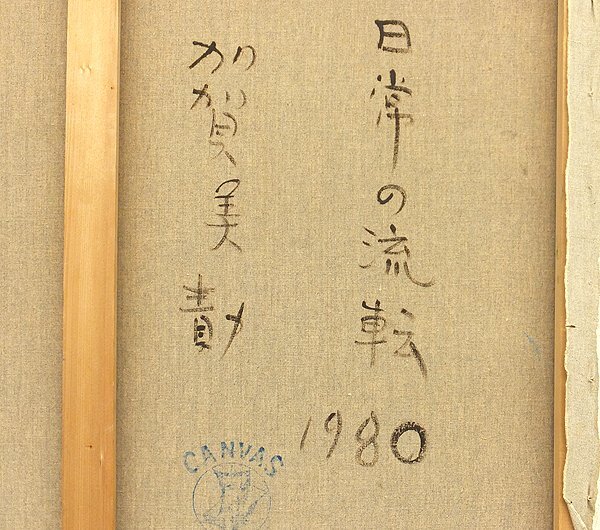 日常の流転
1980
加賀美勣
CANVAS